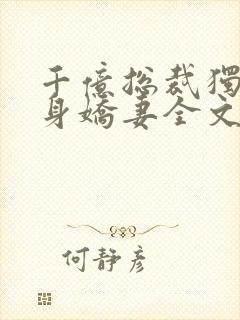 千億総裁獨
身嬌妻全文
何静彦